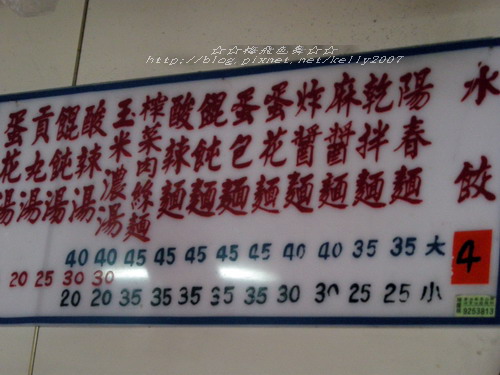 ☆☆梅飛色舞☆☆
http://blog.pixnet.net/kelly2007
水餃
陽春麵
乾拌麵
麻醬麵
炸醬麵
蛋花麵
蛋包麵
餛飩麵
酸辣麵
榨菜肉絲麵
玉米濃湯
酸辣湯
餛飩湯
貢丸湯
蛋花湯
4
40 40 45 45 45 45 45 40 40 35 35 大
20 25 30 30
20 20 35 35 35 35 35 30 30 25 25 小
9253813